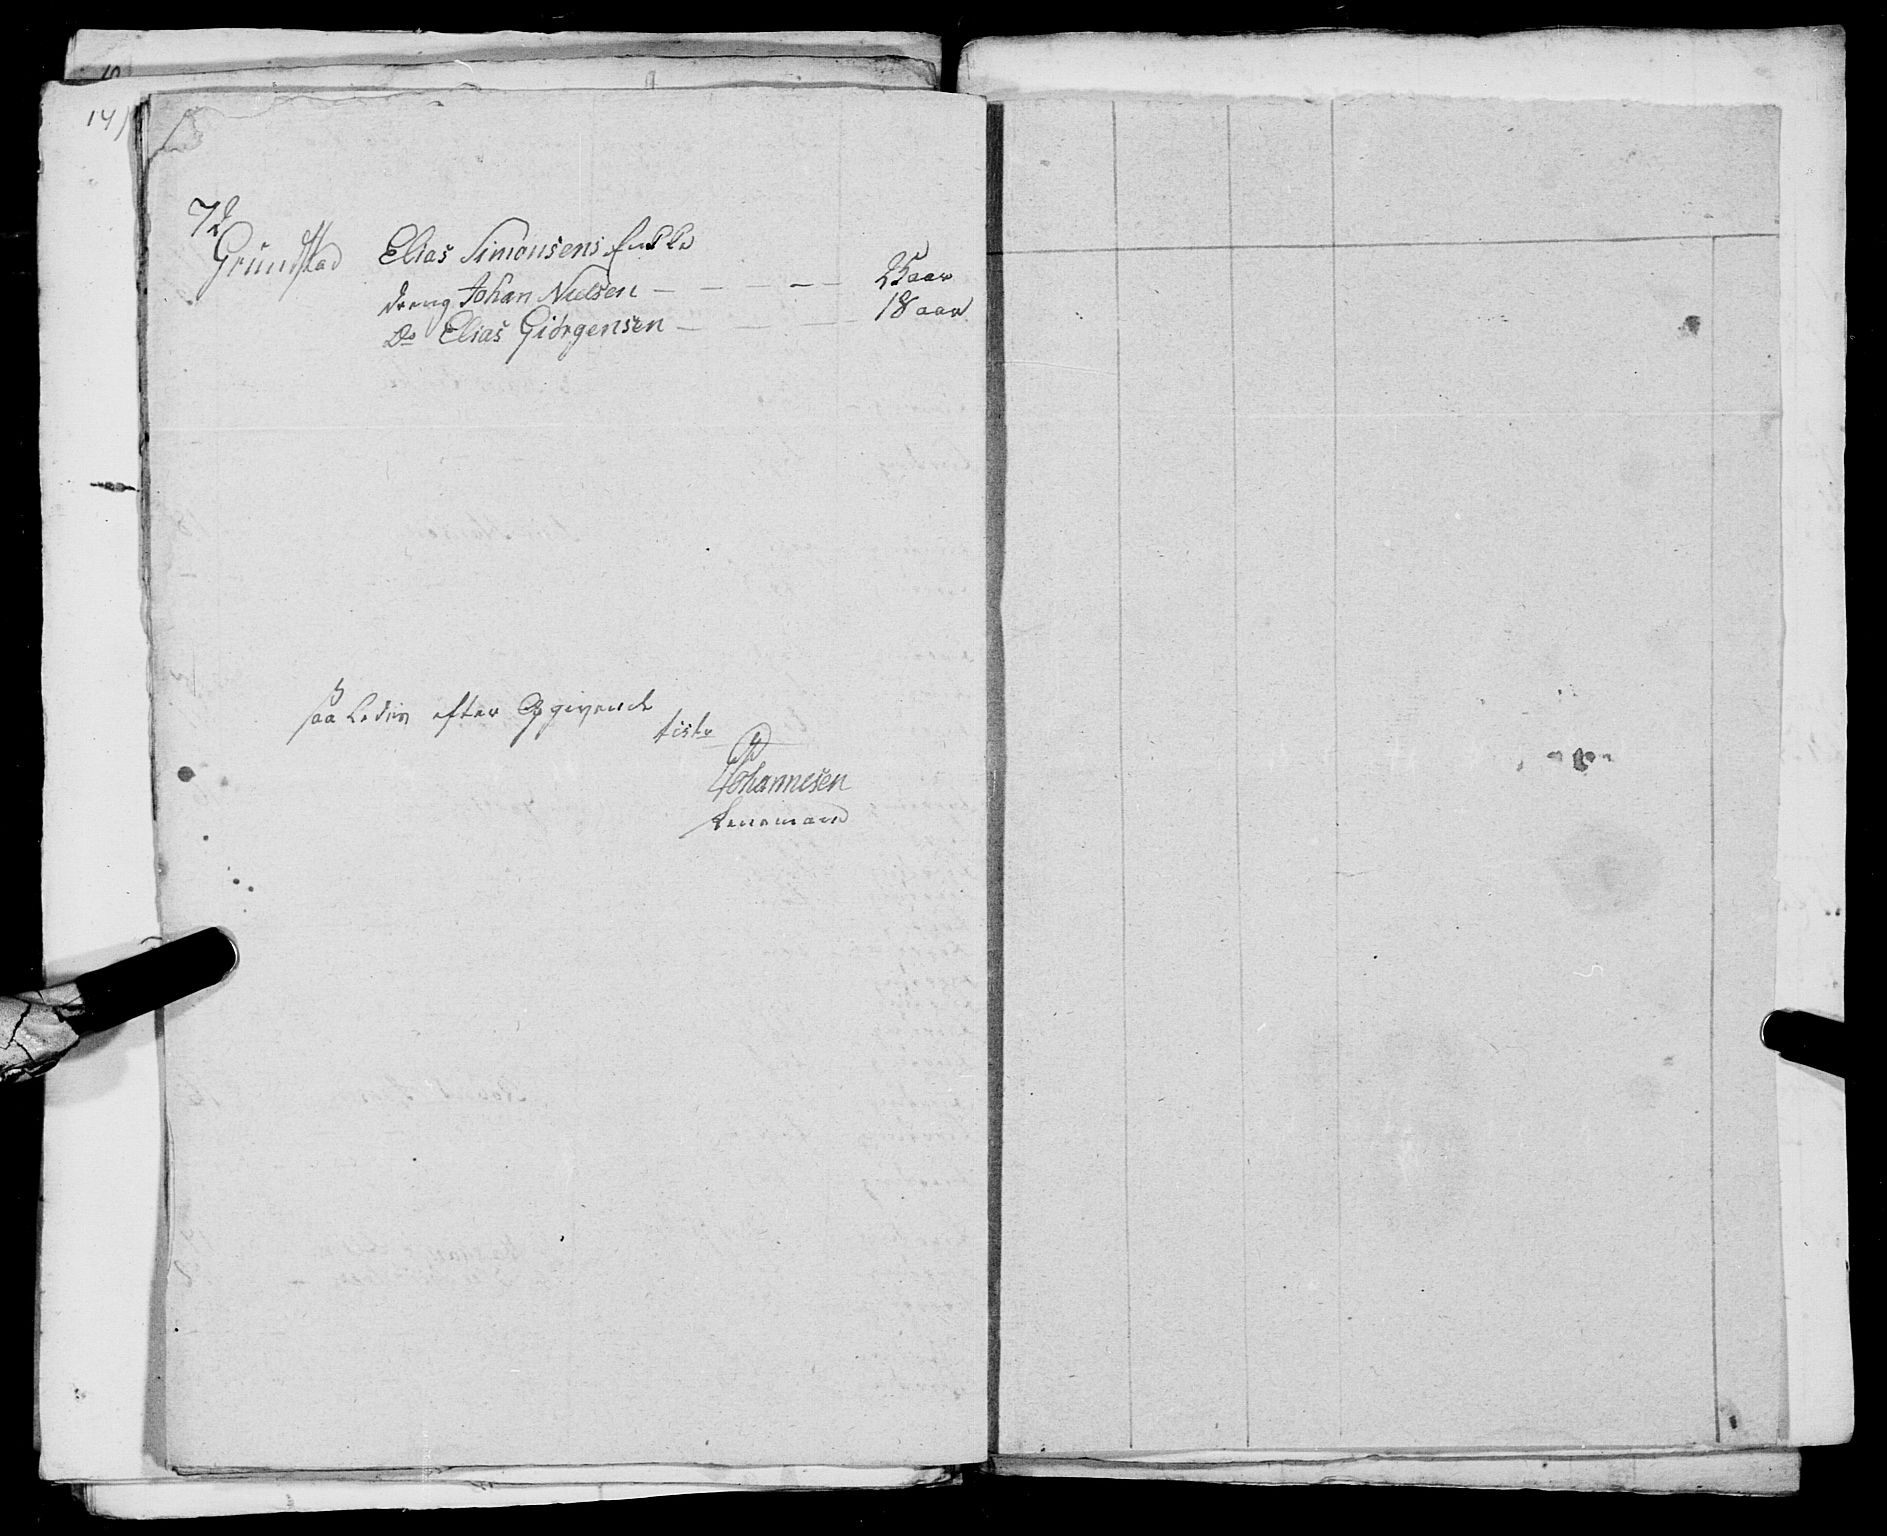 14)
72
Grundstad Elias Simonsens Enke
dreng Johan Nielsen — — — — 25 aar
Do Elias Giörgensen — — — 18 aar
saaledes efter Opgivende
Johannesen
Lensmand